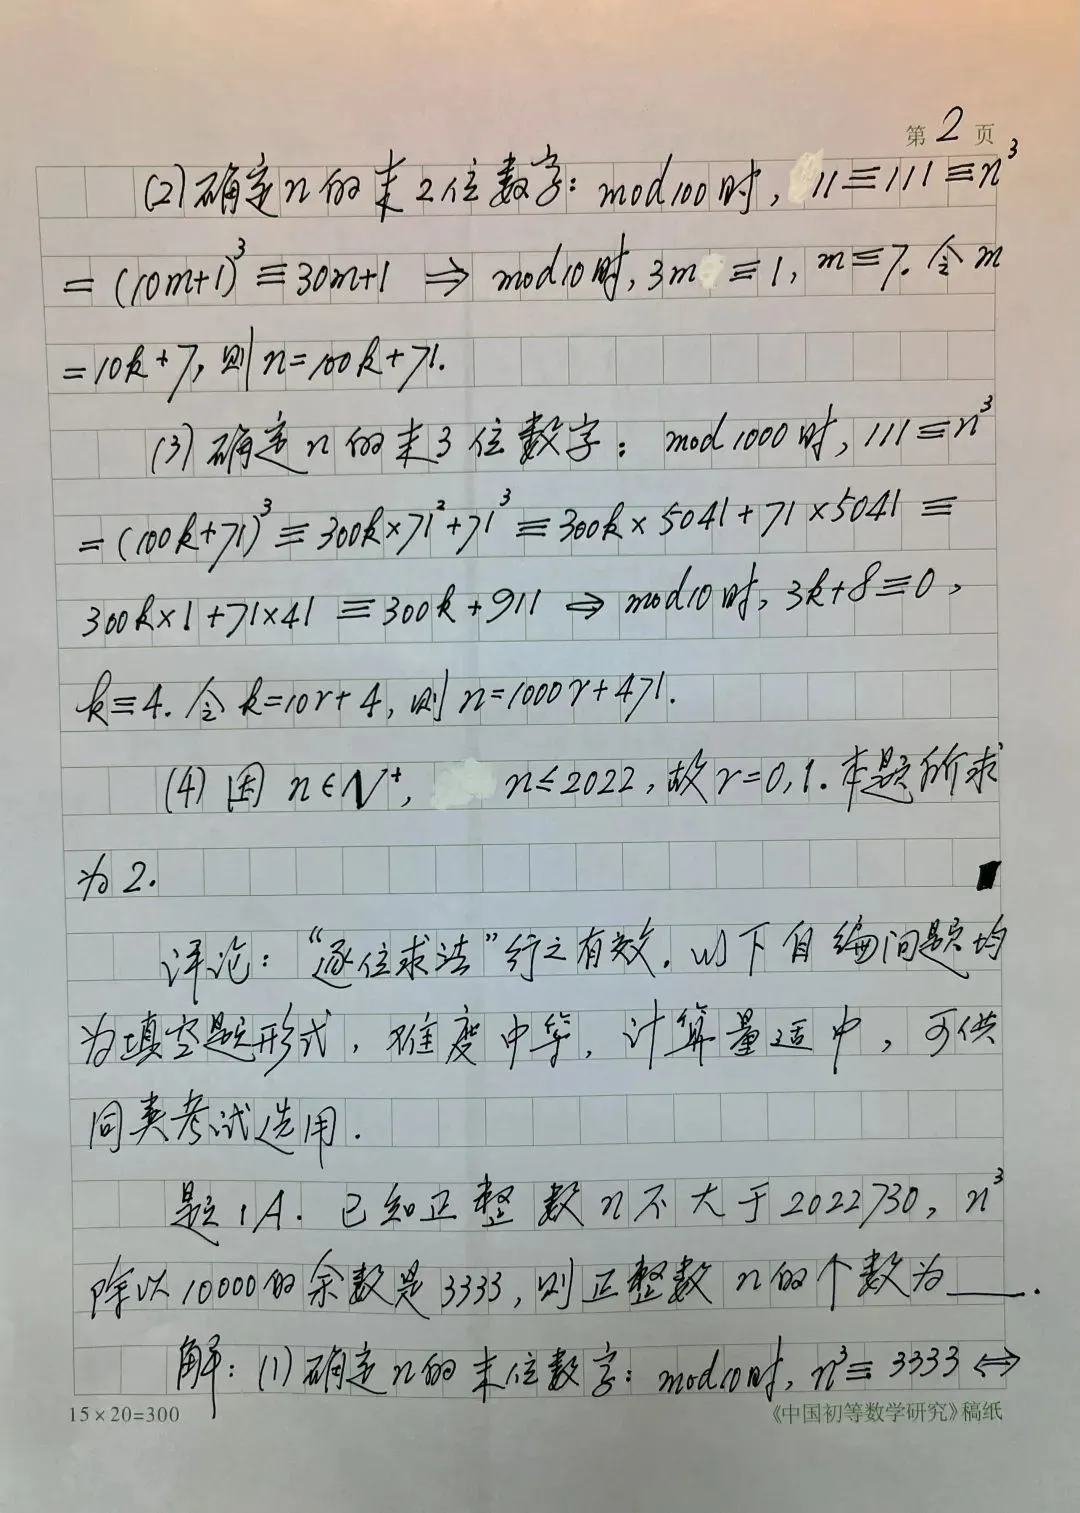 第2页
(2)确定n的末2位数字：mod100时，11≡111≡n³
=(10m+1)³≡30m+1 ⇒ mod10时，3m≡1，m≡7．令m
=10k+7，则n=100k+71.
(3)确定n的末3位数字：mod1000时，111≡n³
=(100k+71)³≡300k×71²+71³≡300k×5041+71×5041≡
300k×1+71×41≡300k+911 ⇒ mod10时，3k+8≡0，
k≡4．令k=10r+4，则n=1000r+471.
(4)因n∈N⁺，n≤2022，故r=0,1．本题所求
为2.
评论：“逐位求法”行之有效．以下自编问题均
为填空题形式，难度中等，计算量适中，可供
同类考试选用.
题1A．已知正整数n不大于2022730，n³
除以10000的余数是3333，则正整数n的个数为____.
解：(1)确定n的末位数字：mod10时，n³≡3333⇔
15×20=300 《中国初等数学研究》稿纸